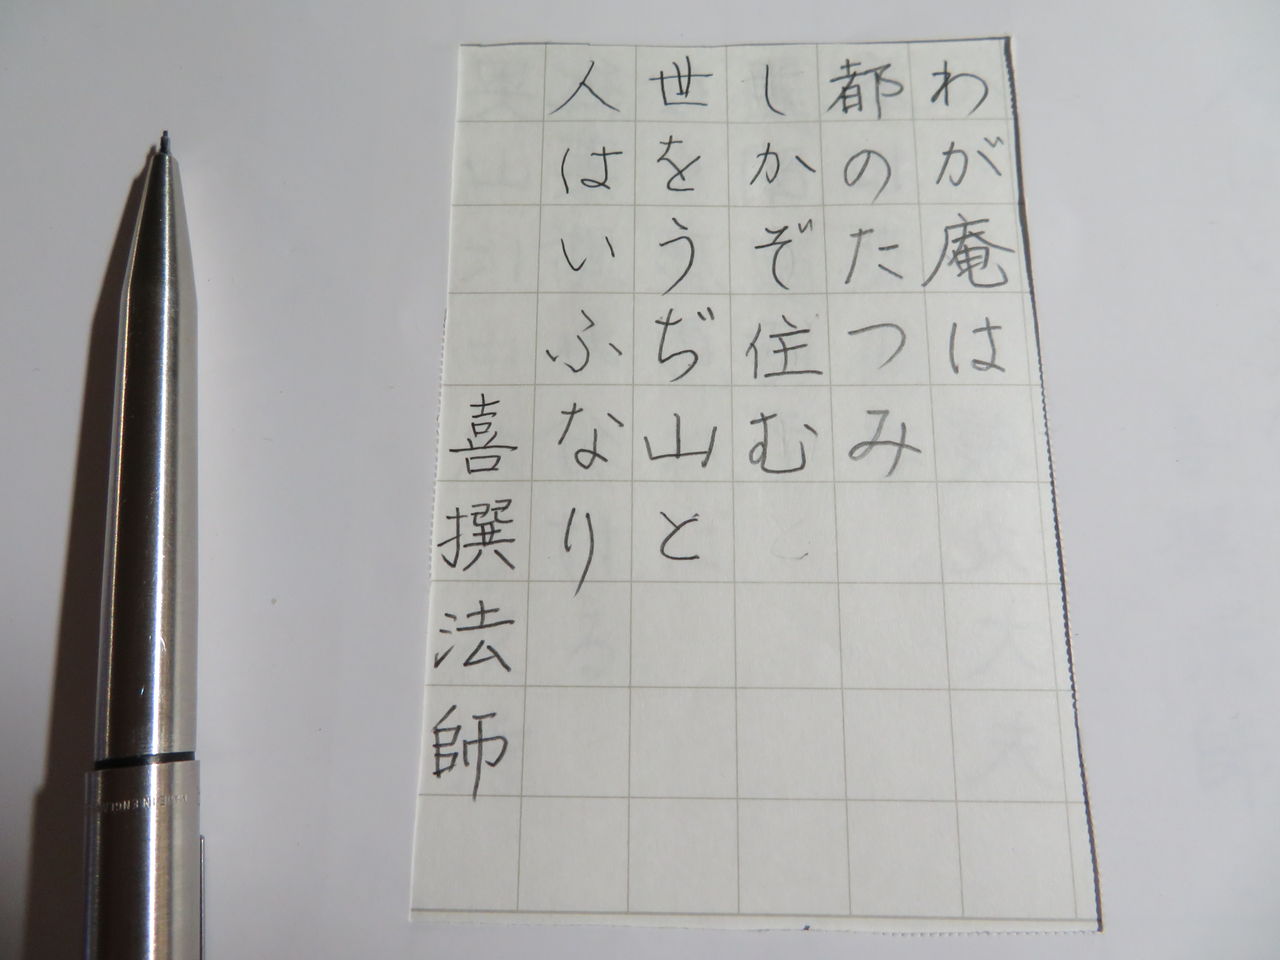 わが庵は
都のたつみ
しかぞ住む
世をうぢ山と
人はいふなり
喜撰法師